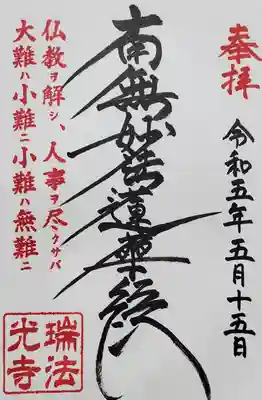 奉拝
令和五年五月十五日
南無妙法蓮華経
仏教ヲ解シ、人事ヲ尽クサバ
大難ハ小難ニ小難ハ無難ニ
瑞法
光寺